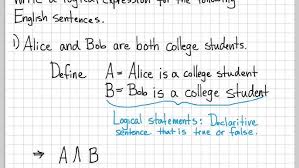 Write a logical expression for the following
English sentences.
1) Alice and Bob are both college students.
Define A = Alice is a college student
B = Bob is a college student
Logical statements: Declaritive
sentence that is true or false.
⇒ A ∧ B